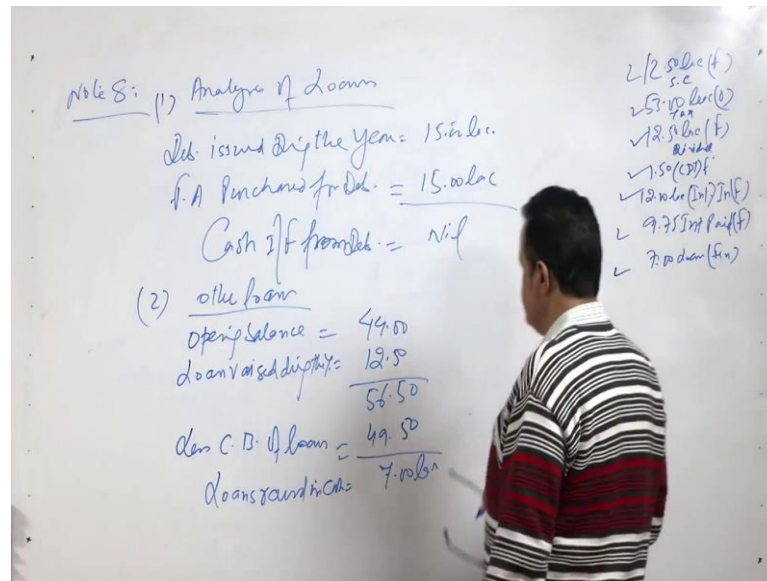 Note 8: (1) Analysis of Loans
Deb. issued during the year = 15.00 lac.
F.A Purchased for Deb. = 15.00 lac
Cash I/F from Deb. = Nil
(2) other loan
opening balance = 44.00
Loan raised during the Y. = 12.50
56.50
Less C.B. of loan = 49.50
Loans in = 7.00 lac
2.50 lac (f)
S.C
53.00 lac (O)
Tax
12.50 lac (f)
Dividend
1.50 (CDT) f
12.00 lac (Int) In (f)
9.75 Int Paid (f)
7.00 loan (fin)